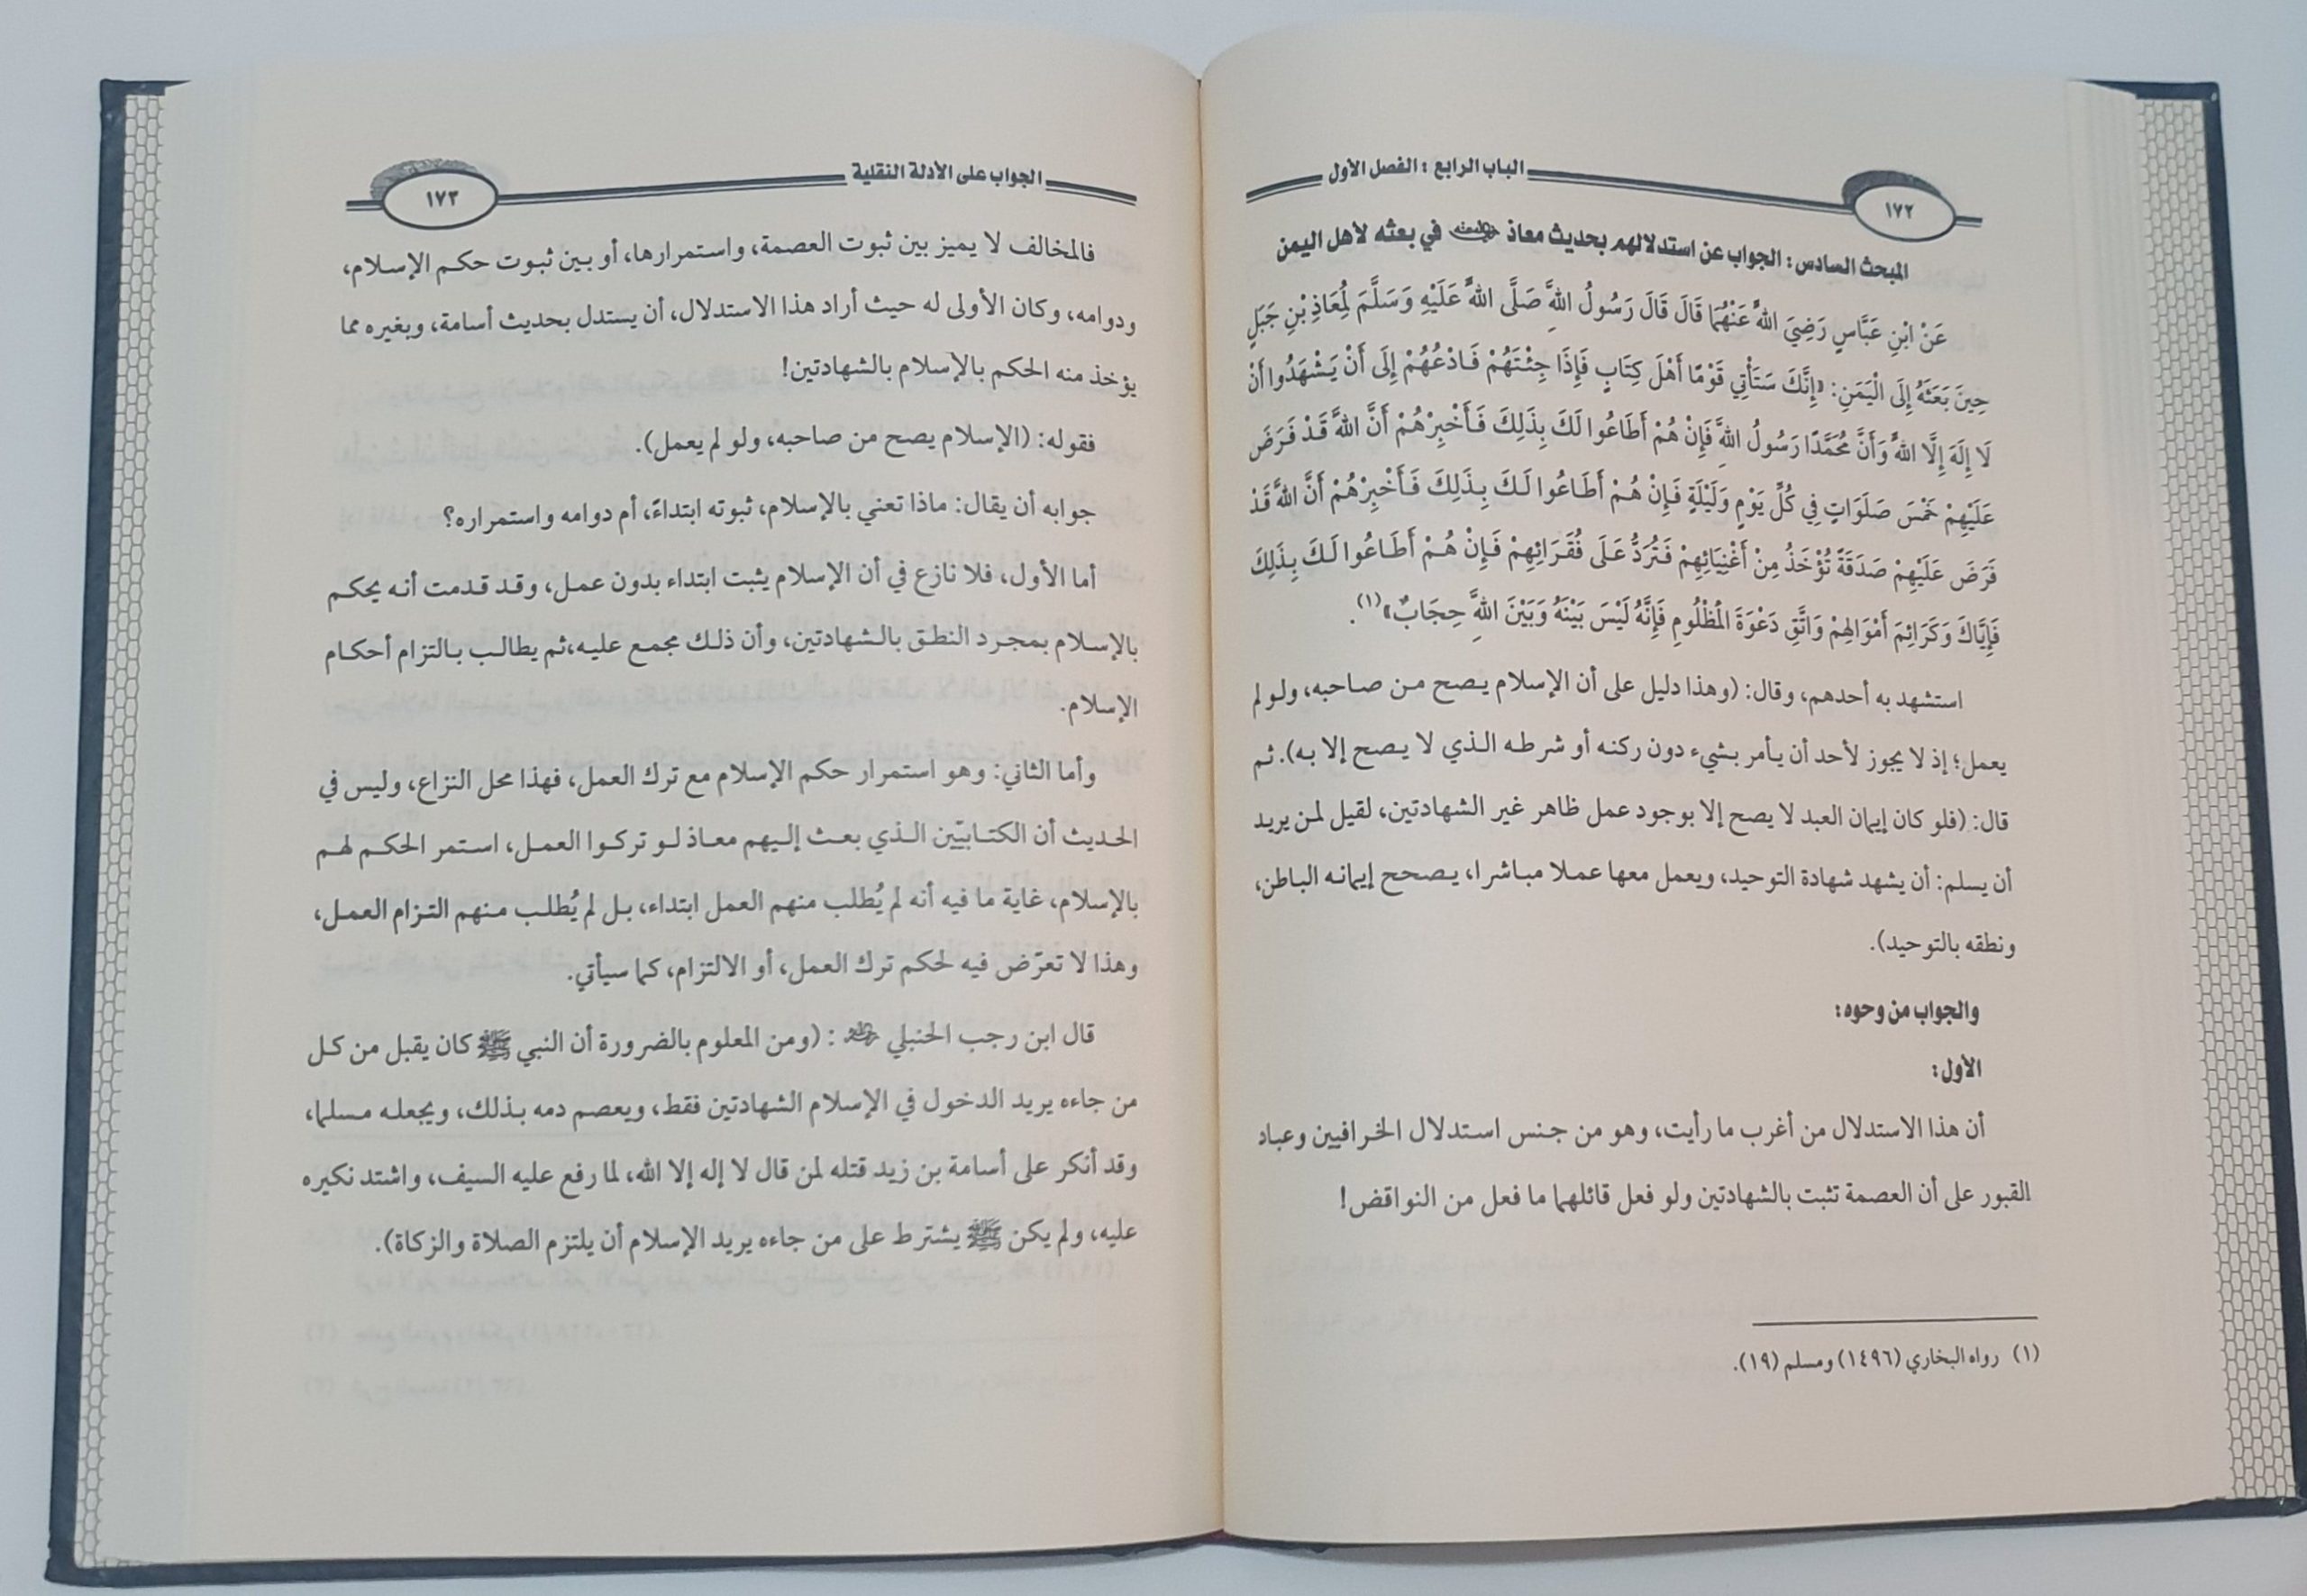 ١٧٢
الباب الرابع : الفصل الأول
المبحث السادس: الجواب عن استدلالهم بحديث معاذ رضي الله عنه في بعثه لأهل اليمن
عَنْ ابْنِ عَبَّاسٍ رَضِيَ اللهُ عَنْهُمَا قَالَ قَالَ رَسُولُ اللهِ صَلَّى اللهُ عَلَيْهِ وَسَلَّمَ لِمُعَاذِ بْنِ جَبَلٍ
حِينَ بَعَثَهُ إِلَى الْيَمَنِ: «إِنَّكَ سَتَأْتِي قَوْمًا أَهْلَ كِتَابٍ فَإِذَا جِئْتَهُمْ فَادْعُهُمْ إِلَى أَنْ يَشْهَدُوا أَنْ
لَا إِلَهَ إِلَّا اللهُ وَأَنَّ مُحَمَّدًا رَسُولُ اللهِ فَإِنْ هُمْ أَطَاعُوا لَكَ بِذَلِكَ فَأَخْبِرْهُمْ أَنَّ اللهَ قَدْ فَرَضَ
عَلَيْهِمْ خَمْسَ صَلَوَاتٍ فِي كُلِّ يَوْمٍ وَلَيْلَةٍ فَإِنْ هُمْ أَطَاعُوا لَكَ بِذَلِكَ فَأَخْبِرْهُمْ أَنَّ اللهَ قَدْ
فَرَضَ عَلَيْهِمْ صَدَقَةً تُؤْخَذُ مِنْ أَغْنِيَائِهِمْ فَتُرَدُّ عَلَى فُقَرَائِهِمْ فَإِنْ هُمْ أَطَاعُوا لَكَ بِذَلِكَ
فَإِيَّاكَ وَكَرَائِمَ أَمْوَالِهِمْ وَاتَّقِ دَعْوَةَ الْمَظْلُومِ فَإِنَّهُ لَيْسَ بَيْنَهُ وَبَيْنَ اللهِ حِجَابٌ»(١).
استشهد به أحدهم، وقال: (وهذا دليل على أن الإسلام يصح من صاحبه، ولو لم
يعمل؛ إذ لا يجوز لأحد أن يأمر بشيء دون ركنه أو شرطه الذي لا يصح إلا به). ثم
قال: (فلو كان إيمان العبد لا يصح إلا بوجود عمل ظاهر غير الشهادتين، لقيل لمن يريد
أن يسلم: أن يشهد شهادة التوحيد، ويعمل معها عملا مباشرا، يصحح إيمانه الباطن،
ونطقه بالتوحيد).
والجواب من وحوه:
الأول:
أن هذا الاستدلال من أغرب ما رأيت، وهو من جنس استدلال الخرافيين وعباد
القبور على أن العصمة تثبت بالشهادتين ولو فعل قائلهما ما فعل من النواقض!
(١) رواه البخاري (١٤٩٦) ومسلم (١٩).
الجواب على الأدلة النقلية
١٧٣
فالمخالف لا يميز بين ثبوت العصمة، واستمرارها، أو بين ثبوت حكم الإسلام،
ودوامه، وكان الأولى له حيث أراد هذا الاستدلال، أن يستدل بحديث أسامة، وبغيره مما
يؤخذ منه الحكم بالإسلام بالشهادتين!
فقوله: (الإسلام يصح من صاحبه، ولو لم يعمل).
جوابه أن يقال: ماذا تعني بالإسلام، ثبوته ابتداءً، أم دوامه واستمراره؟
أما الأول، فلا نازع في أن الإسلام يثبت ابتداء بدون عمل، وقد قدمت أنه يحكم
بالإسلام بمجرد النطق بالشهادتين، وأن ذلك مجمع عليه،ثم يطالب بالتزام أحكام
الإسلام.
وأما الثاني: وهو استمرار حكم الإسلام مع ترك العمل، فهذا محل النزاع، وليس في
الحديث أن الكتابيّين الذي بعث إليهم معاذ لو تركوا العمل، استمر الحكم لهم
بالإسلام، غاية ما فيه أنه لم يُطلب منهم العمل ابتداء، بل لم يُطلب منهم التزام العمل،
وهذا لا تعرّض فيه لحكم ترك العمل، أو الالتزام، كما سيأتي.
قال ابن رجب الحنبلي رحمه الله : (ومن المعلوم بالضرورة أن النبي ﷺ كان يقبل من كل
من جاءه يريد الدخول في الإسلام الشهادتين فقط، ويعصم دمه بذلك، ويجعله مسلما،
وقد أنكر على أسامة بن زيد قتله لمن قال لا إله إلا الله، لما رفع عليه السيف، واشتد نكيره
عليه، ولم يكن ﷺ يشترط على من جاءه يريد الإسلام أن يلتزم الصلاة والزكاة).